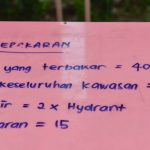 EPAKARAN
yang terbakar = 40
keseluruhan kawasan =
ir = 2 x Hydrant
aran = 15